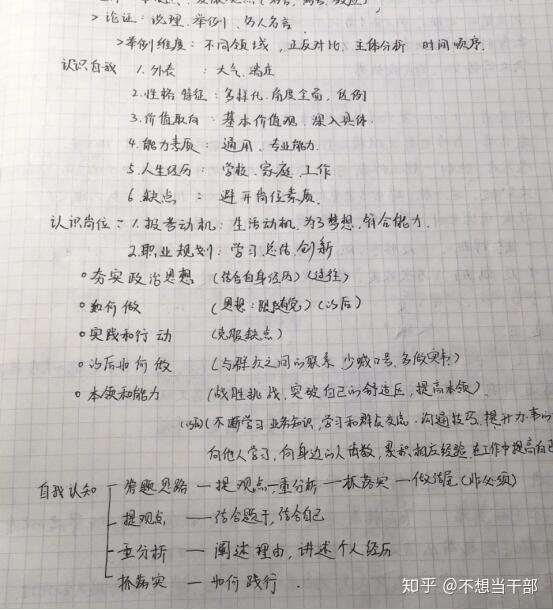 > 论证：说理、举例、名人名言
>举例维度：不同领域，正反对比、主体分析 时间顺序.
认识自我 1.外表：大气、端庄
2.性格特征：多样化、角度全面、
3.价值取向：基本价值观、深入具体.
4.能力素质：通用、专业能力.
5.人生经历：学校、家庭、工作
6.缺点：避开岗位素质.
认识岗位：1.报考动机：生活动机、为了梦想、符合能力.
2.职业规划：学习、总结、创新
○夯实政治思想 (结合自身经历)(过往)
○如何做 (思想：)(以后)
○实践和行动 (克服缺点)
○以后如何做 (与群众之间的联系 少喊口号、多做实事)
○本领和能力 (战胜挑战、突破自己的舒适区，提高本领).
(不断学习业务知识，学习和群众交流、沟通技巧、提升办事的
向他人学习，向身边的人请教，累积相应经验，在工作中提高自己
自我认知 答题思路 — 提观点 — 重分析 — 抓落实 — 做结尾(非必须)
提观点 — 结合题干，结合自己
重分析 — 阐述理由，讲述个人经历
抓落实 — 如何践行.
知乎 @不想当干部